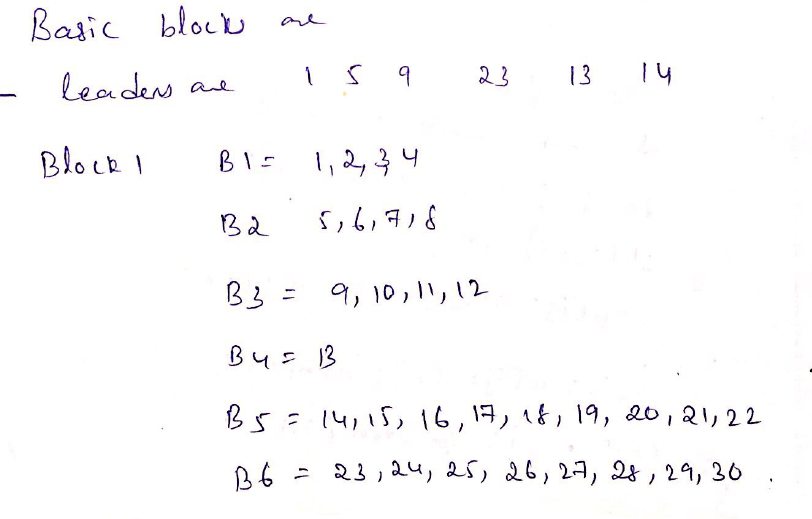 Basic block are
- leaders are 1 5 9 23 13 14
Block 1 B1 = 1, 2, 3, 4
B2 5, 6, 7, 8
B3 = 9, 10, 11, 12
B4 = 13
B5 = 14, 15, 16, 17, 18, 19, 20, 21, 22
B6 = 23, 24, 25, 26, 27, 28, 29, 30 .